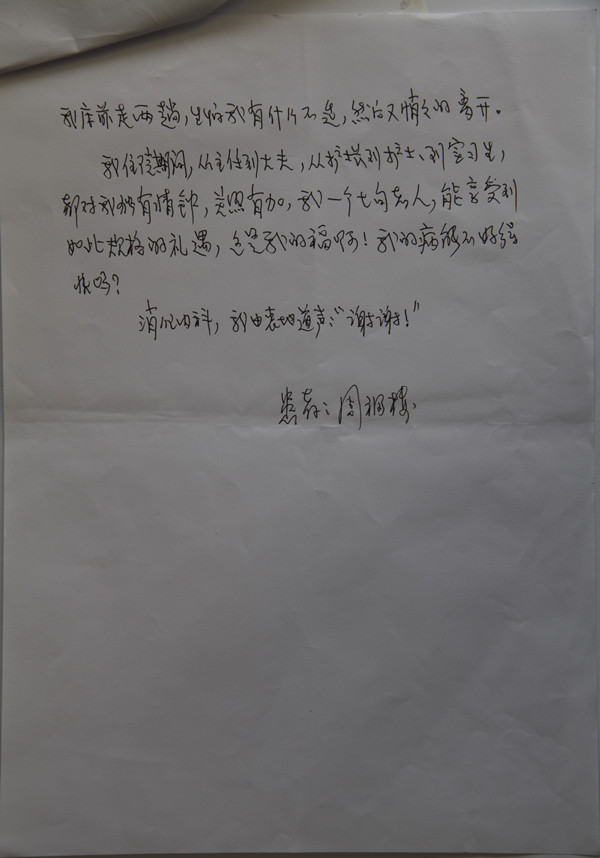 我床前走两趟，生怕我有什么不适，然后又悄悄的离开。
我住院期间，从主任到大夫，从护士长到护士、到实习生，
都对我独有情钟，关照有加，我一个七旬老人，能享受到
如此规格的礼遇，真是我的福啊！我的病能不好得
快吗？
消化内科，我由衷地道声："谢谢！"
患者：周